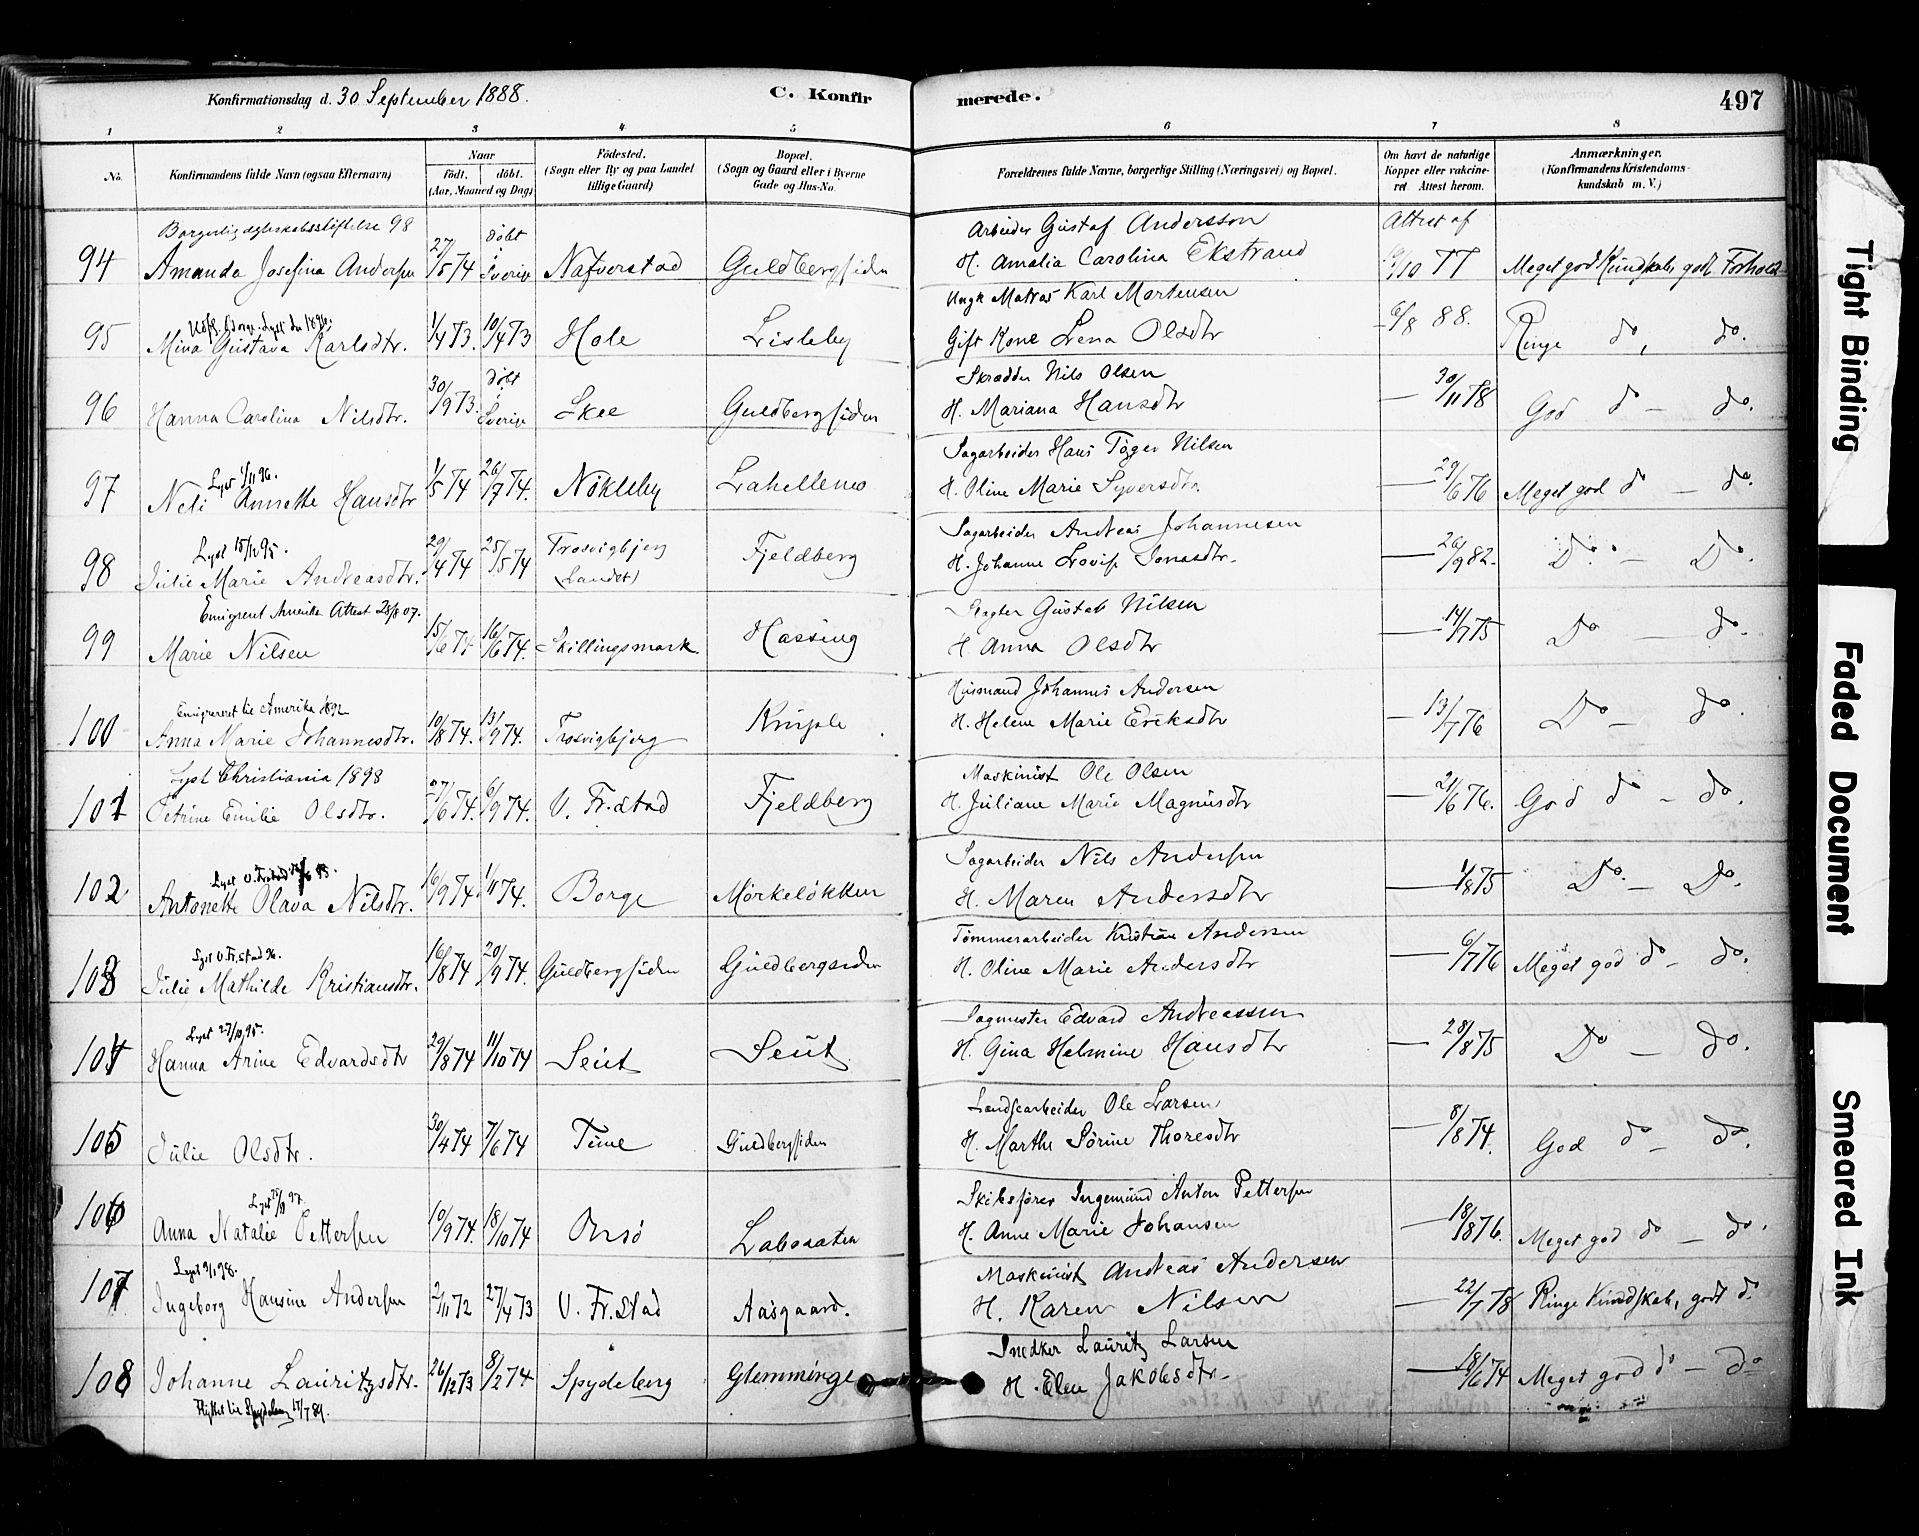 Konfirmationsdag d. 30 September 1888.
C. Konfir
merede.
497
1 2 3 4 5 6 7 8
No.
Konfirmandens fulde Navn (ogsaa Efternavn)
Naar
født. døbt.
(Aar, Maaned og Dag)
Fødested.
(Sogn eller By og paa Landet
tillige Gaard)
Bopæl.
(Sogn og Gaard eller i Byerne
Gade og Hus-No.
Forældrenes fulde Navne, borgerlige Stilling (Næringsvei) og Bopæl.
Om havt de naturlige
Kopper eller vakcine-
ret Attest herom.
Anmærkninger.
(Konfirmandens Kristendoms-
kundskab m. V.)
Borgerlig ægteskabsstiftelse 98 døbt Arbeider Gustaf Andersson Attest af
94 Amanda Josefina Andersen 27/5 74 i Sverige Nafverstad Guldbergsiden H. Amalia Carolina Ekstrand /10 77 Meget god Kundskab, godt Forhold
Ungk Matros Karl Martensen
95 Mina Gustava Karlsdtr. 1/4 73. 10/4 73 Hole Lisleby Gift Kone Lena Olsdtr 6/8 88. Ringe do, do.
døbt Skrædder Nils Olsen
96 Hanna Carolina Nilsdtr. 30/9 73. i Sverige Skee Guldbergsiden H. Mariana Hansdtr — 30/11 78 God do — do.
Lyst 1/11 96. Sagarbeider Hans Tøger Nilsen
97 Neli Annette Hansdtr 1/5 74 26/7 74. Nøkleby Lahellemo H. Oline Marie Syversdtr. — 29/6 76 Meget god do — do.
Lyst 15/12 95. Trosvigbjerg Sagarbeider Andreas Johannesen
98 Julie Marie Andreasdtr. 29/4 74 25/5 74 (Landet) Fjeldberg H. Johanne Lovise Jonasdtr. — 26/9 82. Do. — Do.
Emigrent Amerika Attest 28/8 07. Gustab Nilsen
99 Marie Nilsen 15/6 74. 16/6 74. Skillingsmark Hassing H. Anna Olsdtr — 14/7 75 Do — do.
Emigreret til Amerika 1892 Husmand Johannes Andersen
100 Anna Marie Johannesdtr. 10/8 74. 13/9 74. Trosvigbjerg Kniple H. Helene Marie Eriksdtr — 13/7 76 Do — do.
Lyst Christiania 1898 Maskinist Ole Olsen
101 Petrine Emilie Olsdtr. 27/6 74. 6/9 74. V. Fr.stad Fjeldberg H. Juliane Marie Magnusdtr — 21/6 76. God do — do.
Lyst V. Frstad Sagarbeider Nils Andersen
102 Antonette Olava Nilsdtr. 16/9 74 1/11 74. Borge Mørkeløkken H. Maren Andersdtr — 1/8 75 Do. — Do.
Lyst V. Fr.stad 96. Tømmerarbeider Kristian Andersen
103 Julie Mathilde Kristiansdtr. 16/8 74 20/9 74. Guldbergsiden Guldbergsiden H. Oline Marie Andersdtr — 6/7 76 Meget god do — do.
Lyst 27/10 95. Sagmester Edvard Andreassen
104 Hanna Arine Edvardsdtr 29/8 74 11/10 74 Seut Seut. H. Gina Helmine Hansdtr — 28/8 75 Do — do.
Landsearbeider Ole Larsen
105 Julie Olsdtr. 30/4 74 7/6 74 Tune Guldbergsiden H. Marthe Sørine Thoresdtr — 8/8 74. God do — do.
Skibsfører Ingemund Anton Pettersen
106 Anna Natalie Pettersen 10/9 74. 18/10 74 Onsø Labosaten H. Anne Marie Johansen — 18/8 76. Meget god do — do.
Lyst 9/1 98. Maskinist Andreas Andersen
107 Ingeborg Hansine Andersen 2/11 72 27/4 73 V. Fr.stad Aasgaard. H. Karen Nilsen — 22/7 78 Ringe Kundskab, godt d.
Snedker Lauritz Larsen
108 Johanne Lauritzsdtr. 26/12 73 8/2 74 Spydeberg Glemminge H. Elen Jakobsdtr. — 18/6 74 Meget god do — do
Flyttet til Spydeberg 17/7 89.
Tight Binding
Faded Document
Smeared Ink